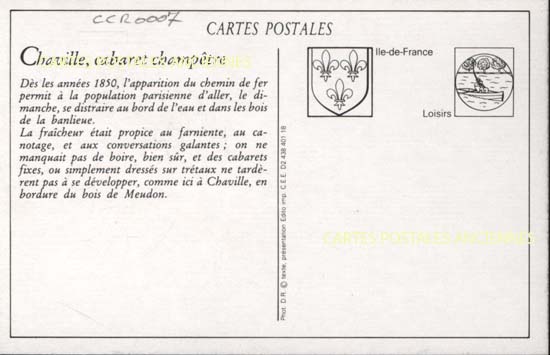 CCR0007
CARTES POSTALES
Chaville, cabaret champêtre
Dès les années 1850, l'apparition du chemin de fer
permit à la population parisienne d'aller, le di-
manche, se distraire au bord de l'eau et dans les bois
de la banlieue.
La fraîcheur était propice au farniente, au ca-
notage, et aux conversations galantes ; on ne
manquait pas de boire, bien sûr, et des cabarets
fixes, ou simplement dressés sur trétaux ne tardè-
rent pas à se développer, comme ici à Chaville, en
bordure du bois de Meudon.
Ile-de-France
Loisirs
Phot. D.R. © texte, présentation Edito imp. C.E.E. D2 438 401 18
CARTES POSTALES ANCIENNES
CARTES POSTALES ANCIENNES